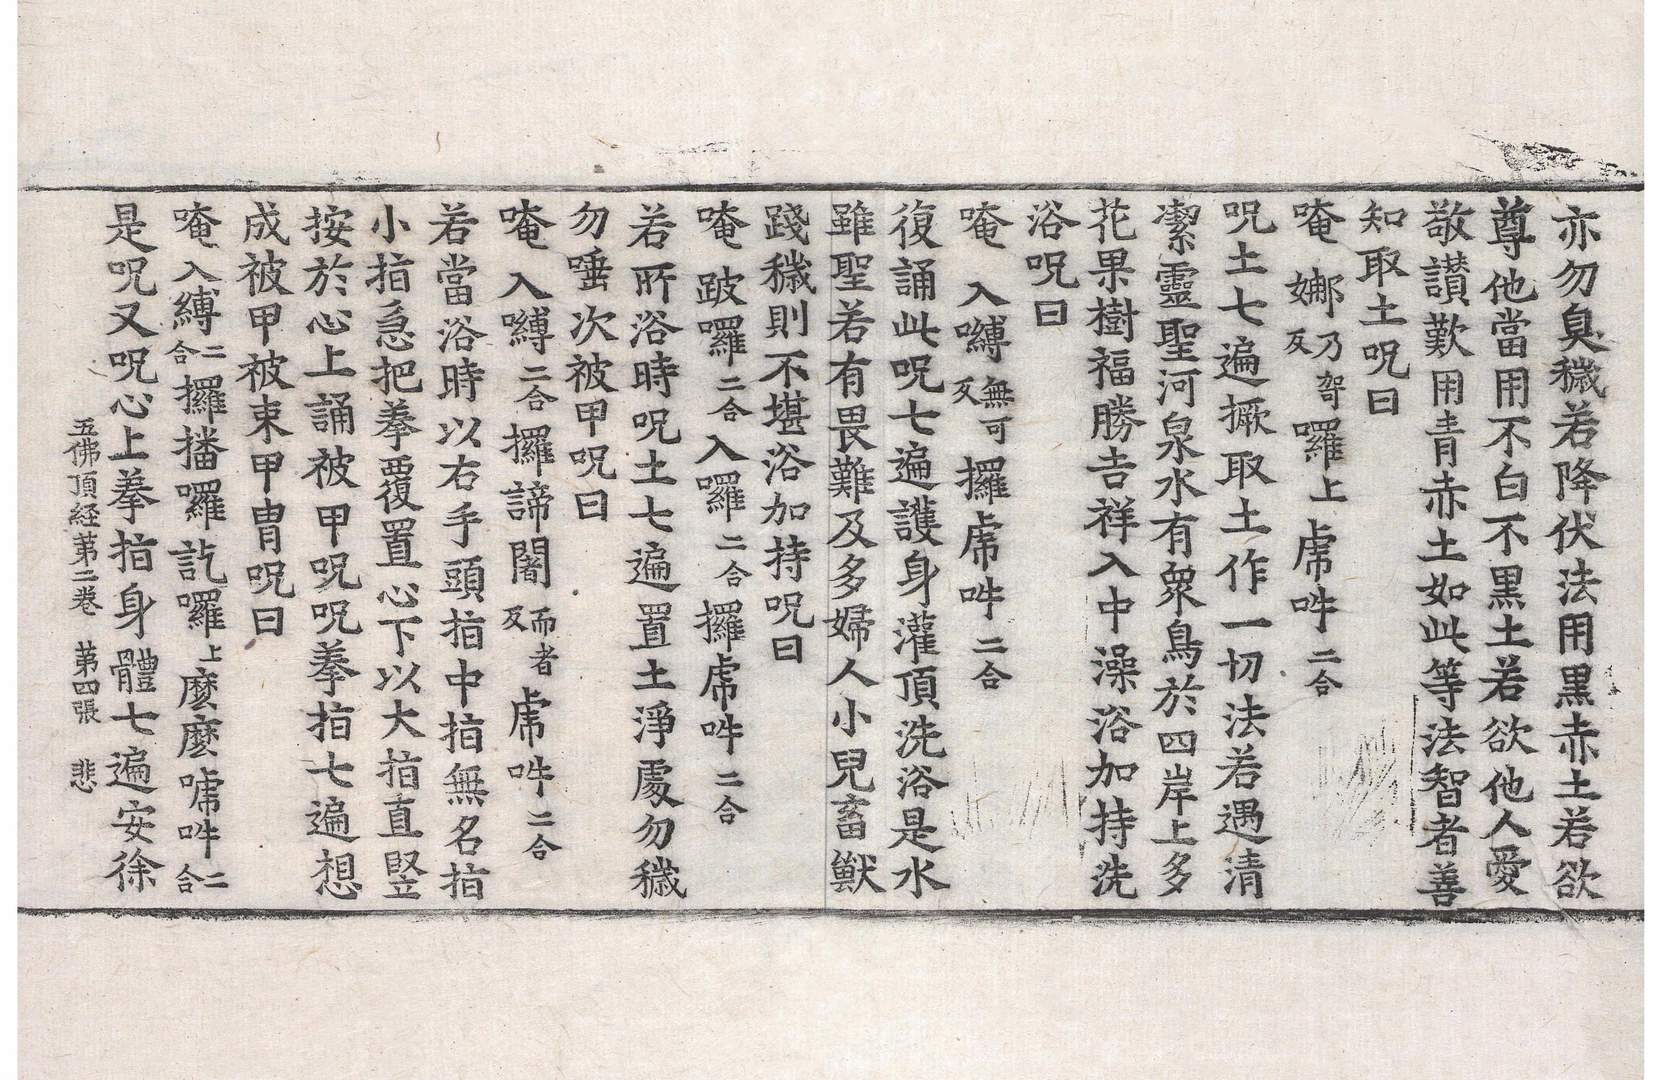 亦勿臭穢若降伏法用黒赤土若欲
尊他當用不白不黒土若欲他人愛
敬讃歎用青赤土如此等法智者善
知取土呪曰
唵 娜乃䚗反 囉上 虎𤙖二合
呪土七遍撅取土作一切法若遇清
潔靈聖河泉水有衆鳥於四岸上多
花果樹福勝吉祥入中澡浴加持洗
浴呪曰
唵 入嚩無可反 攞虎𤙖二合
復誦此呪七遍護身灌頂洗浴是水
雖聖若有畏難及多婦人小兒畜獸
踐穢則不堪浴加持呪曰
唵 跛囉二合 入囉二合 攞虎𤙖二合
若所浴時呪土七遍置土淨處勿穢
勿唾次被甲呪曰
唵 入嚩二合 攞諦闍而者反 虎𤙖二合
若當浴時以右手頭指中指無名指
小指急把拳覆置心下以大指直竪
按於心上誦被甲呪呪拳指七遍想
成被甲被束甲冑呪曰
唵入嚩二合攞播囉訖囉上麼麼㖀𤙖二合
是呪又呪心上拳指身體七遍安徐
五佛頂経苐二卷 第四張 悲